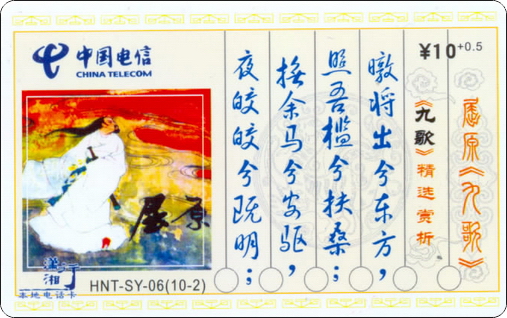 中国电信
CHINA TELECOM
¥10+0.5
屈原《九歌》
《九歌》精选赏析
暾将出兮东方，
照吾槛兮扶桑；
抚余马兮安驱，
夜皎皎兮既明；
屈原
潇湘
本地电话卡
HNT-SY-06(10-2)